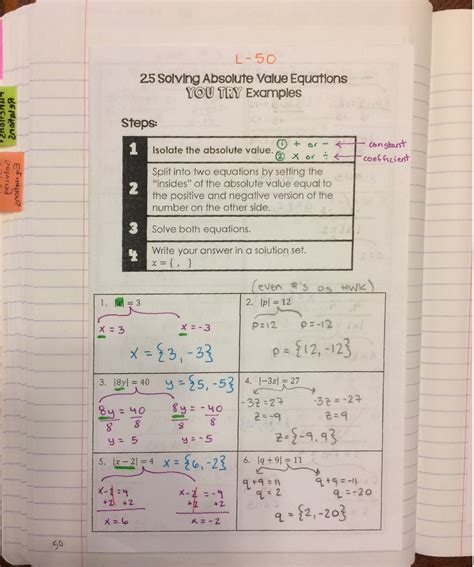 L-50
2.5 Solving Absolute Value Equations
YOU TRY Examples
Steps:
1 Isolate the absolute value. ① + or - ← constant
② x or ÷ ← coefficient
2 Split into two equations by setting the
"insides" of the absolute value equal to
the positive and negative version of the
number on the other side.
3 Solve both equations.
4 Write your answer in a solution set.
x = { , }
(even #'s as HWK)
1. |x| = 3
x = 3 x = -3
x = {3, -3}
2. |p| = 12
p=12 p=-12
p = {12, -12}
3. |8y| = 40 y = {5, -5}
8y = 40 8y = -40
8 8 8 8
y = 5 y = -5
4. |-3z| = 27
-3z = 27 -3z = -27
z = -9 z = 9
z = {-9, 9}
5. |x - 2| = 4 x = {6, -2}
x - 2 = 4 x - 2 = -4
+2 +2 +2 +2
x = 6 x = -2
6. |q + 9| = 11
q+9 = 11 q+9 = -11
q = 2 q = -20
q = {2, -20}
50